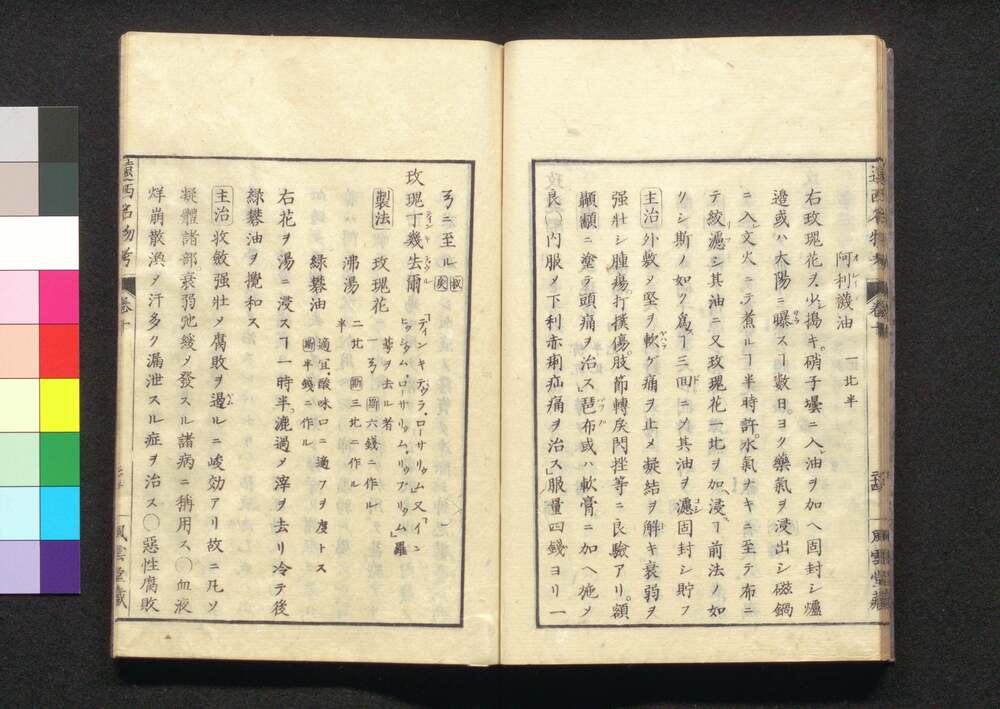 阿利襪油 一比半
右玫瑰花ヲ少シ搗キ。硝子壜ニ入レ油ヲ加ヘ固封シ爐
邉或ハ大陽ニ曝スヿ數日。ヨク藥氣ヲ浸出シ磁鍋
ニ入レ文火ニテ煮ルヿ半時許。水氣ナキニ至テ布ニ
テ絞濾シ其油ニ又玫瑰花六比ヲ加ヘ浸スヿ前法ノ如
クシ斯ノ如ク爲ヿ三回ニメ其油ヲ濾固封シ貯フ
主治 外敷メ堅ヲ軟ゲ痛ヲ止メ凝結ヲ解キ衰弱ヲ
强壯シ腫瘍。打撲傷。肢節轉戾閃挫等ニ良驗アリ。額
顳顬ニ塗テ頭痛ヲ治ス琶布或ハ軟膏ニ加ヘ施メ
良〇内服メ下利赤痢疝痛ヲ治ス服量四錢ヨリ一
遠西名物考 卷十 風雲堂藏
ヲニ至ル
玫瑰丁幾去爾 「ティンキテウラ、ローサリュム」又「イン
ヒュシュム、ローサリュム、リュブリュム」羅
製法 玫瑰花 蕚ヲ去ル者 一ヲ 六錢ニ作ル
沸湯 二比半 三比ニ作ル
綠礬油 適宜、酸味口ニ適フヲ度トス 半錢ニ作ル
右花ヲ湯ニ浸スヿ一時半。漉過メ滓ヲ去リ冷テ後
綠礬油ヲ攪和ス
主治 收斂强壯メ腐敗ヲ遏ルニ峻効アリ故ニ凡ソ
凝體諸部。衰弱弛緩メ發スル諸病ニ稱用ス〇血液
烊崩散渙メ汗多ク漏泄スル症ヲ治ス〇惡性腐敗
遠西名物考 卷十 風雲堂藏